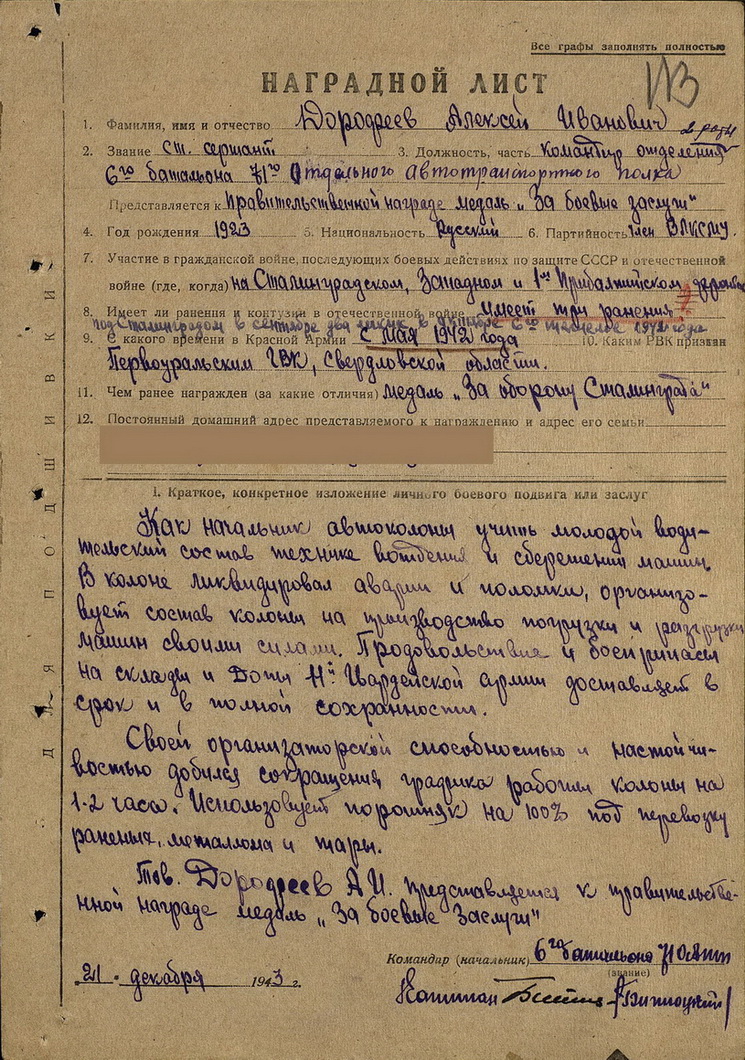 Все графы заполнять полностью
НАГРАДНОЙ ЛИСТ
1. Фамилия, имя и отчество Дородреев Алексей Иванович
2. Звание ст. сержант 3. Должность, часть командир отделения 2 роты
6го батальона 71го Отдельного автотранспортного полка
Представляется к правительственной награде медаль „За боевые заслуги"
4. Год рождения 1923 5. Национальность Русский 6. Партийность член ВЛКСМ.
7. Участие в гражданской войне, последующих боевых действиях по защите СССР и отечественной
войне (где, когда) на Сталинградском, Западном и 1м Прибалтийском фронтах
8. Имеет ли ранения и контузии в отечественной войне имеет три ранения
под Сталинградом в сентябре два в октябре 6го 1942 года
9. С какого времени в Красной Армии с мая 1942 года 10. Каким РВК призван
Первоуральским ГВК, Свердловской области.
11. Чем ранее награжден (за какие отличия) медаль „За оборону Сталинграда"
12. Постоянный домашний адрес представляемого к награждению и адрес его семьи
I. Краткое, конкретное изложение личного боевого подвига или заслуг
Как начальник автоколоны учить молодой води-
тельский состав технике вождения и сбережении машин.
В колоне ликвидировал аварии и поломки, организо-
вует состав колоны на производство погрузки и разгрузки
машин своими силами. Продовольствия и боеприпасы
на склады и ДОПы 11й Гвардейской армии доставляет в
срок и в полной сохранности.
Своей организаторской способностью и настойчи-
востью добился сокращения графика работы колоны на
1-2 часа. Использовует порожняк на 100% под перевозку
раненых, металлома и тары.
Тов. Дородреев А.И. представляется к правительстве-
нной награде медаль „За боевые Заслуги"
Командир (начальник) 6го батальона 71 ОАТП
(звание)
„21" декабря 1943 г.
Капитан
ДЛЯ ПОДШИВКИ